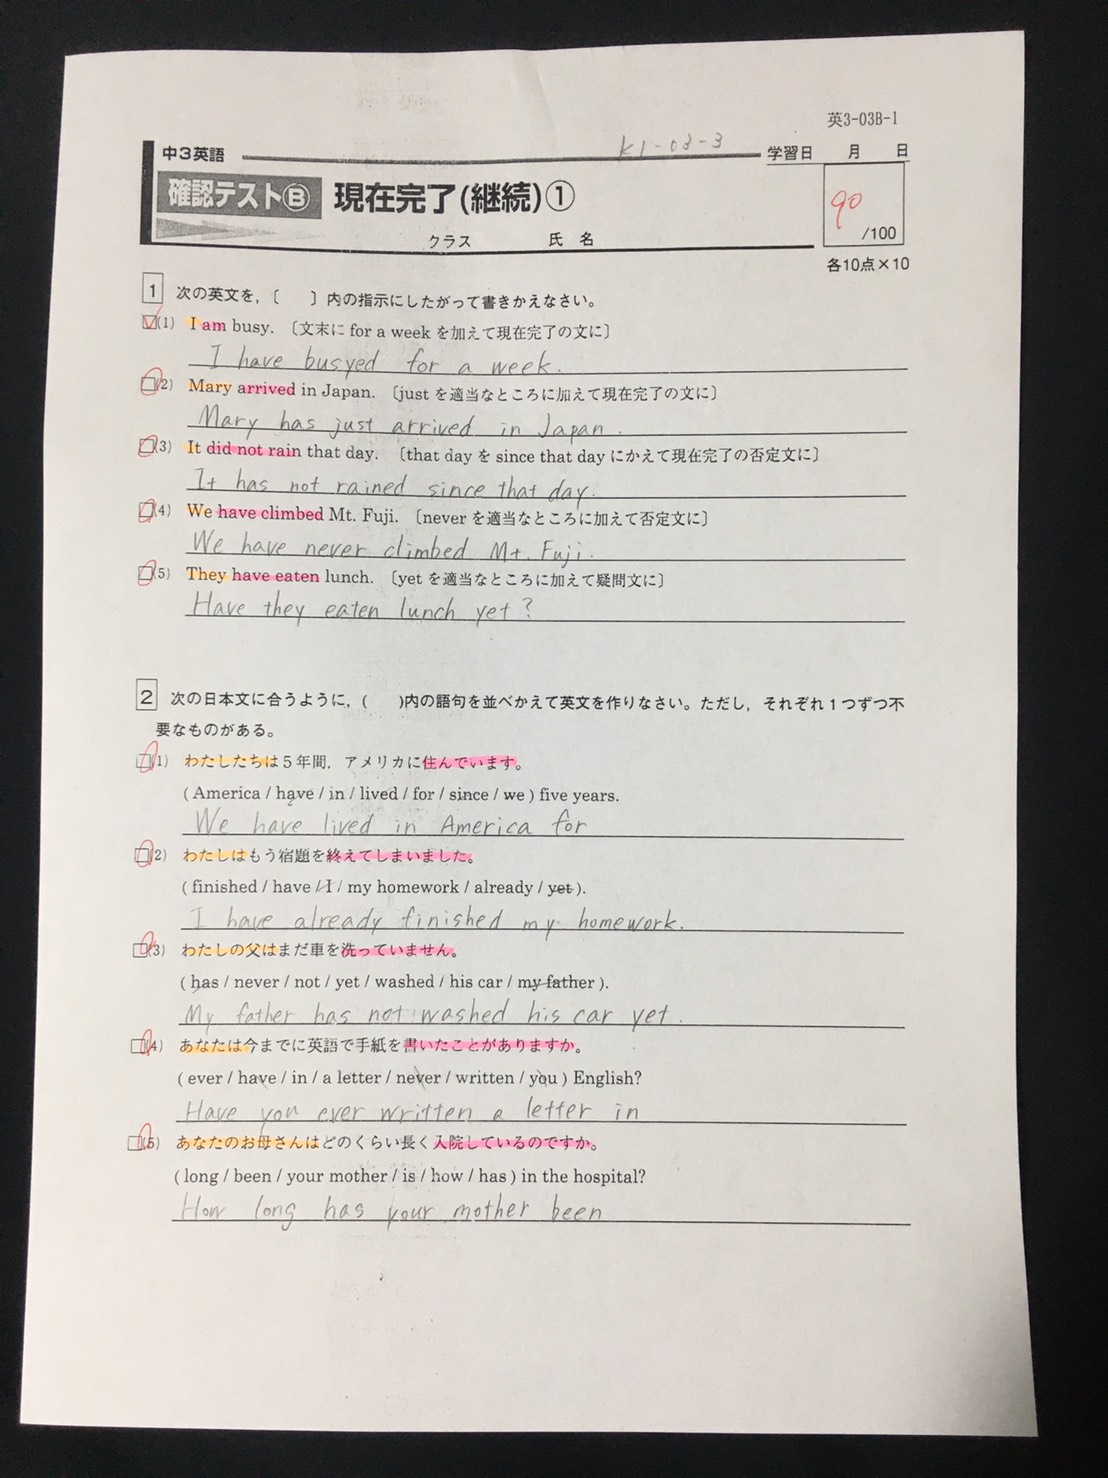 英3-03B-1
中3英語 K1-03-3 学習日 月 日
確認テストⒷ 現在完了(継続)① 90 /100
クラス 氏 名
各10点×10
1 次の英文を,〔 〕内の指示にしたがって書きかえなさい。
(1) I am busy. 〔文末に for a week を加えて現在完了の文に〕
I have busyed for a week.
(2) Mary arrived in Japan. 〔just を適当なところに加えて現在完了の文に〕
Mary has just arrived in Japan.
(3) It did not rain that day. 〔that day を since that day にかえて現在完了の否定文に〕
It has not rained since that day.
(4) We have climbed Mt. Fuji. 〔never を適当なところに加えて否定文に〕
We have never climbed Mt. Fuji.
(5) They have eaten lunch. 〔yet を適当なところに加えて疑問文に〕
Have they eaten lunch yet?
2 次の日本文に合うように,( )内の語句を並べかえて英文を作りなさい。ただし,それぞれ1つずつ不
要なものがある。
(1) わたしたちは5年間,アメリカに住んでいます。
( America / have / in / lived / for / since / we ) five years.
We have lived in America for
(2) わたしはもう宿題を終えてしまいました。
( finished / have / I / my homework / already / yet ).
I have already finished my homework.
(3) わたしの父はまだ車を洗っていません。
( has / never / not / yet / washed / his car / my father ).
My father has not washed his car yet.
(4) あなたは今までに英語で手紙を書いたことがありますか。
( ever / have / in / a letter / never / written / you ) English?
Have you ever written a letter in
(5) あなたのお母さんはどのくらい長く入院しているのですか。
( long / been / your mother / is / how / has ) in the hospital?
How long has your mother been